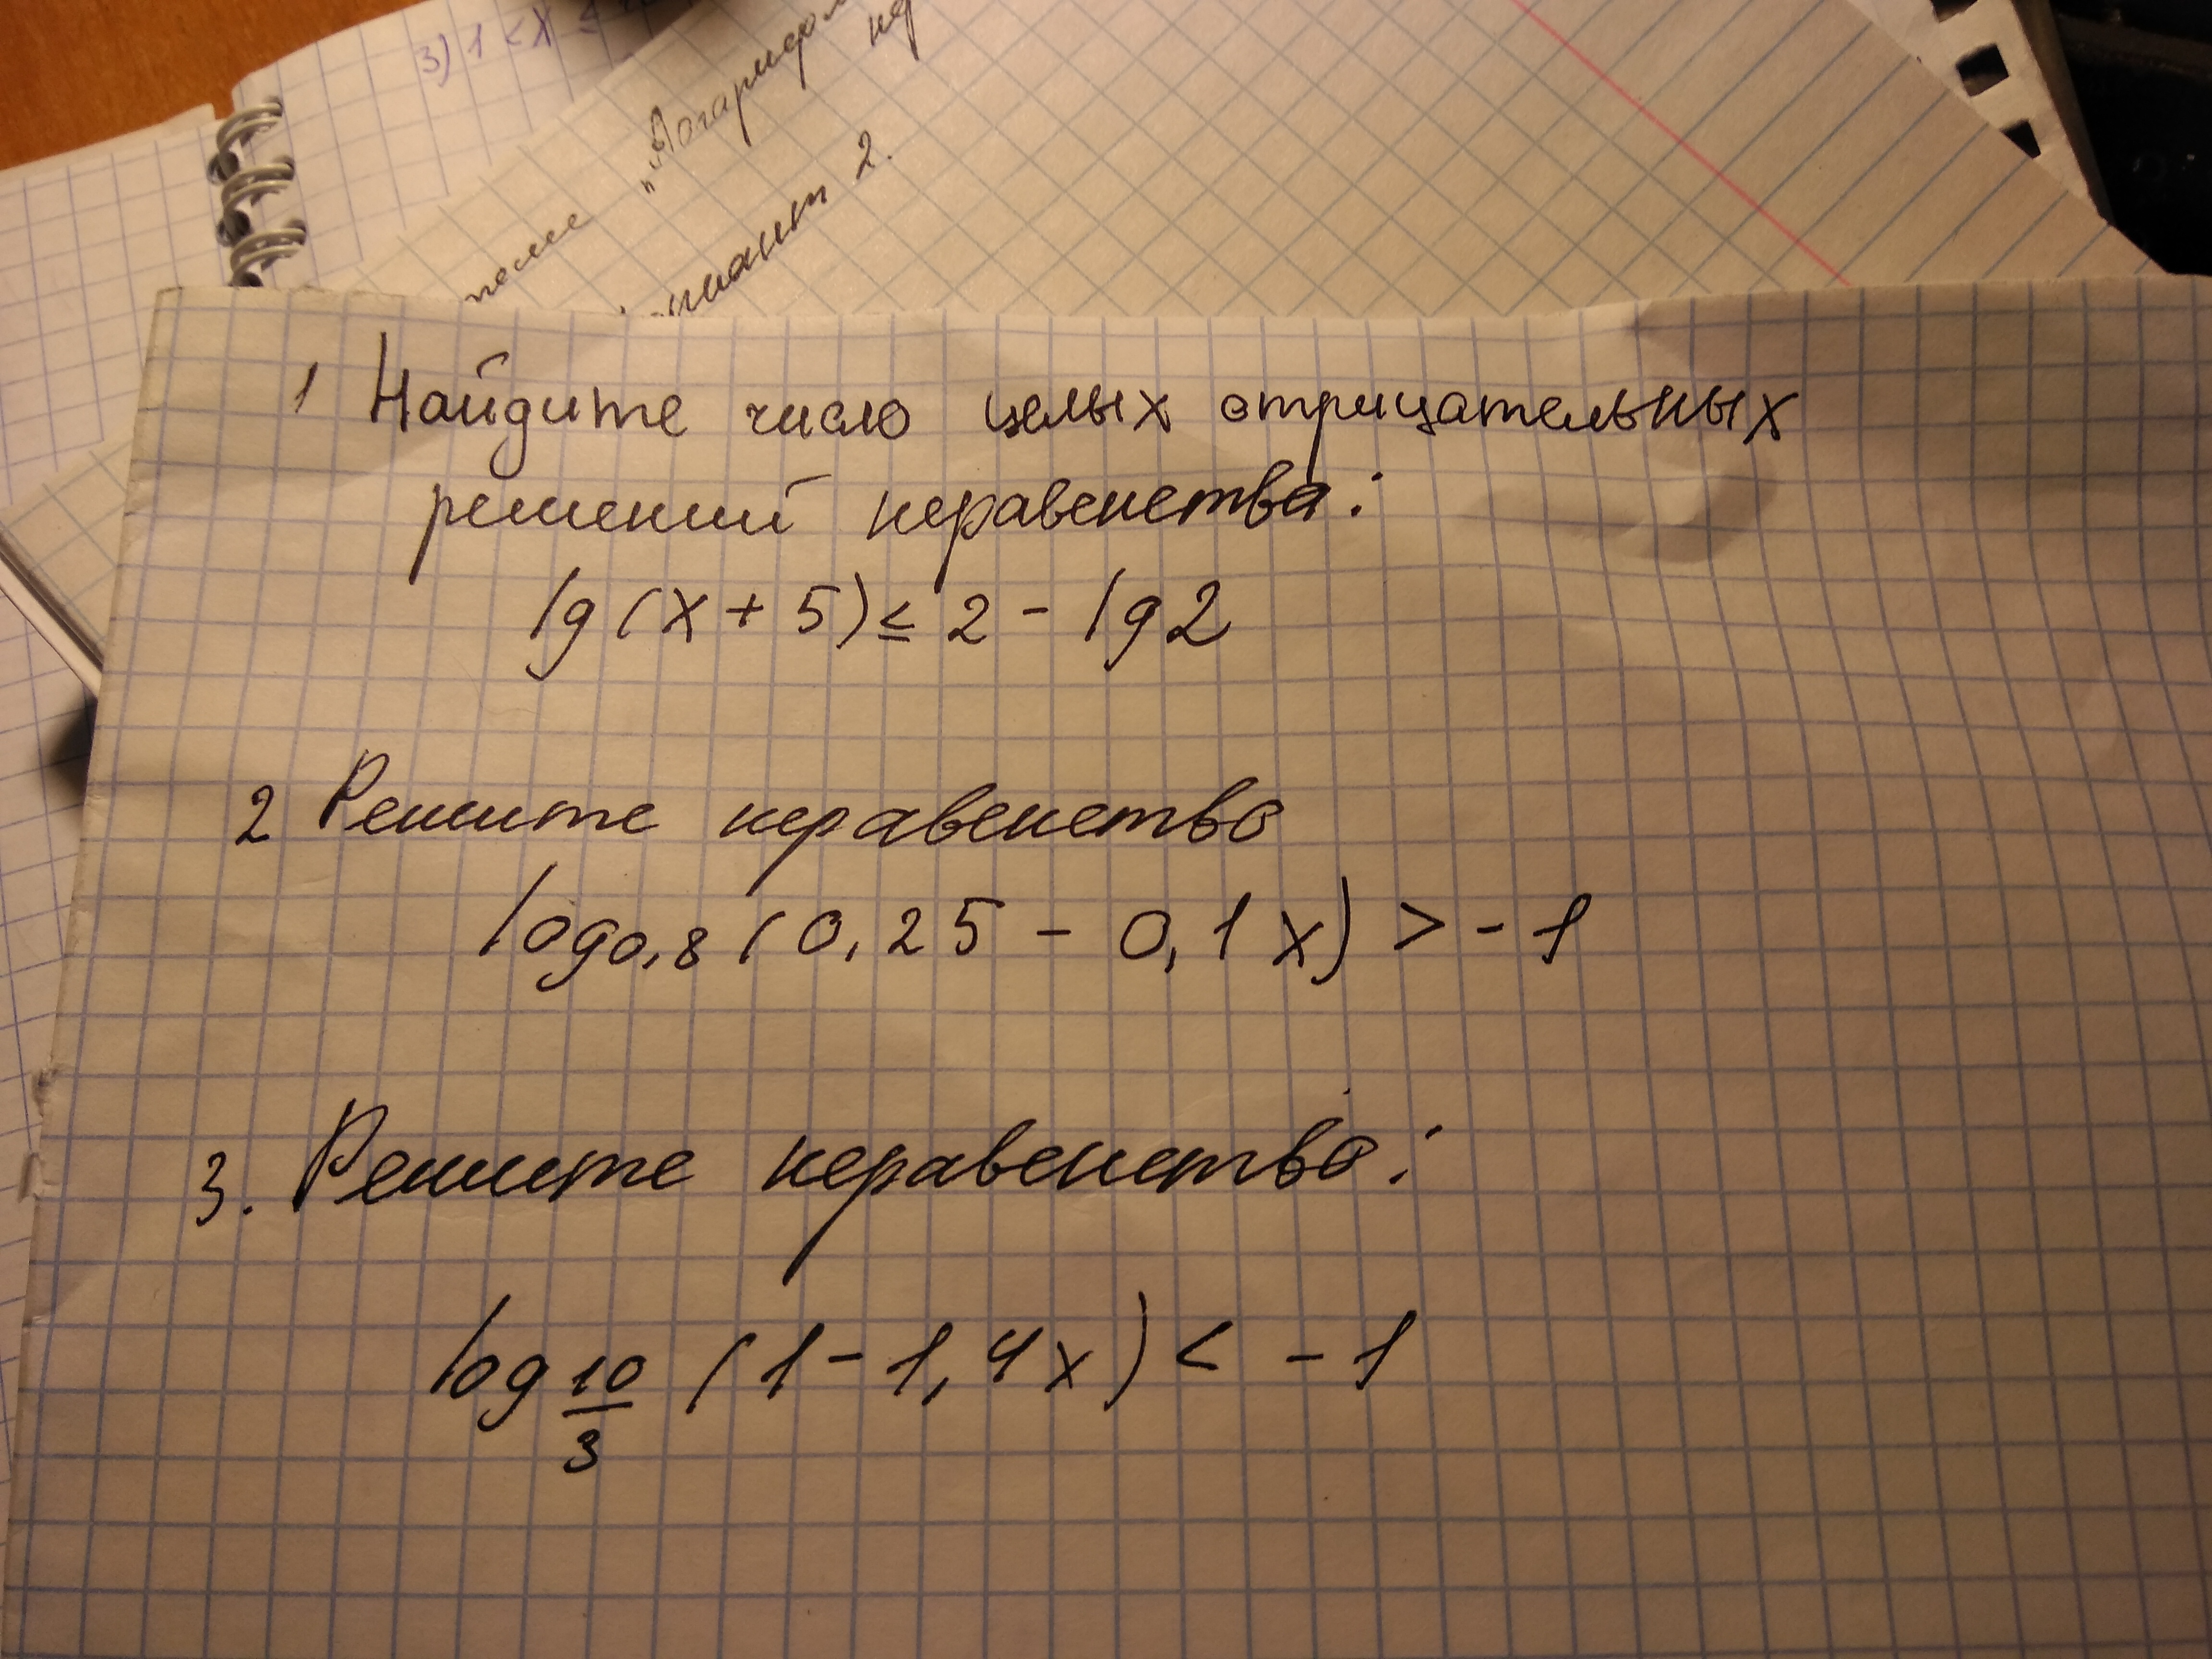 3) 1 < x ≤
теме "Логарифм
нер
2.
1 Найдите число целых отрицательных
решений неравенства:
lg (x + 5) ≤ 2 - lg 2
2 Решите неравенство
log0,8 (0,25 - 0,1x) > -1
3. Решите неравенство:
log10/3 (1 - 1,4x) < -1